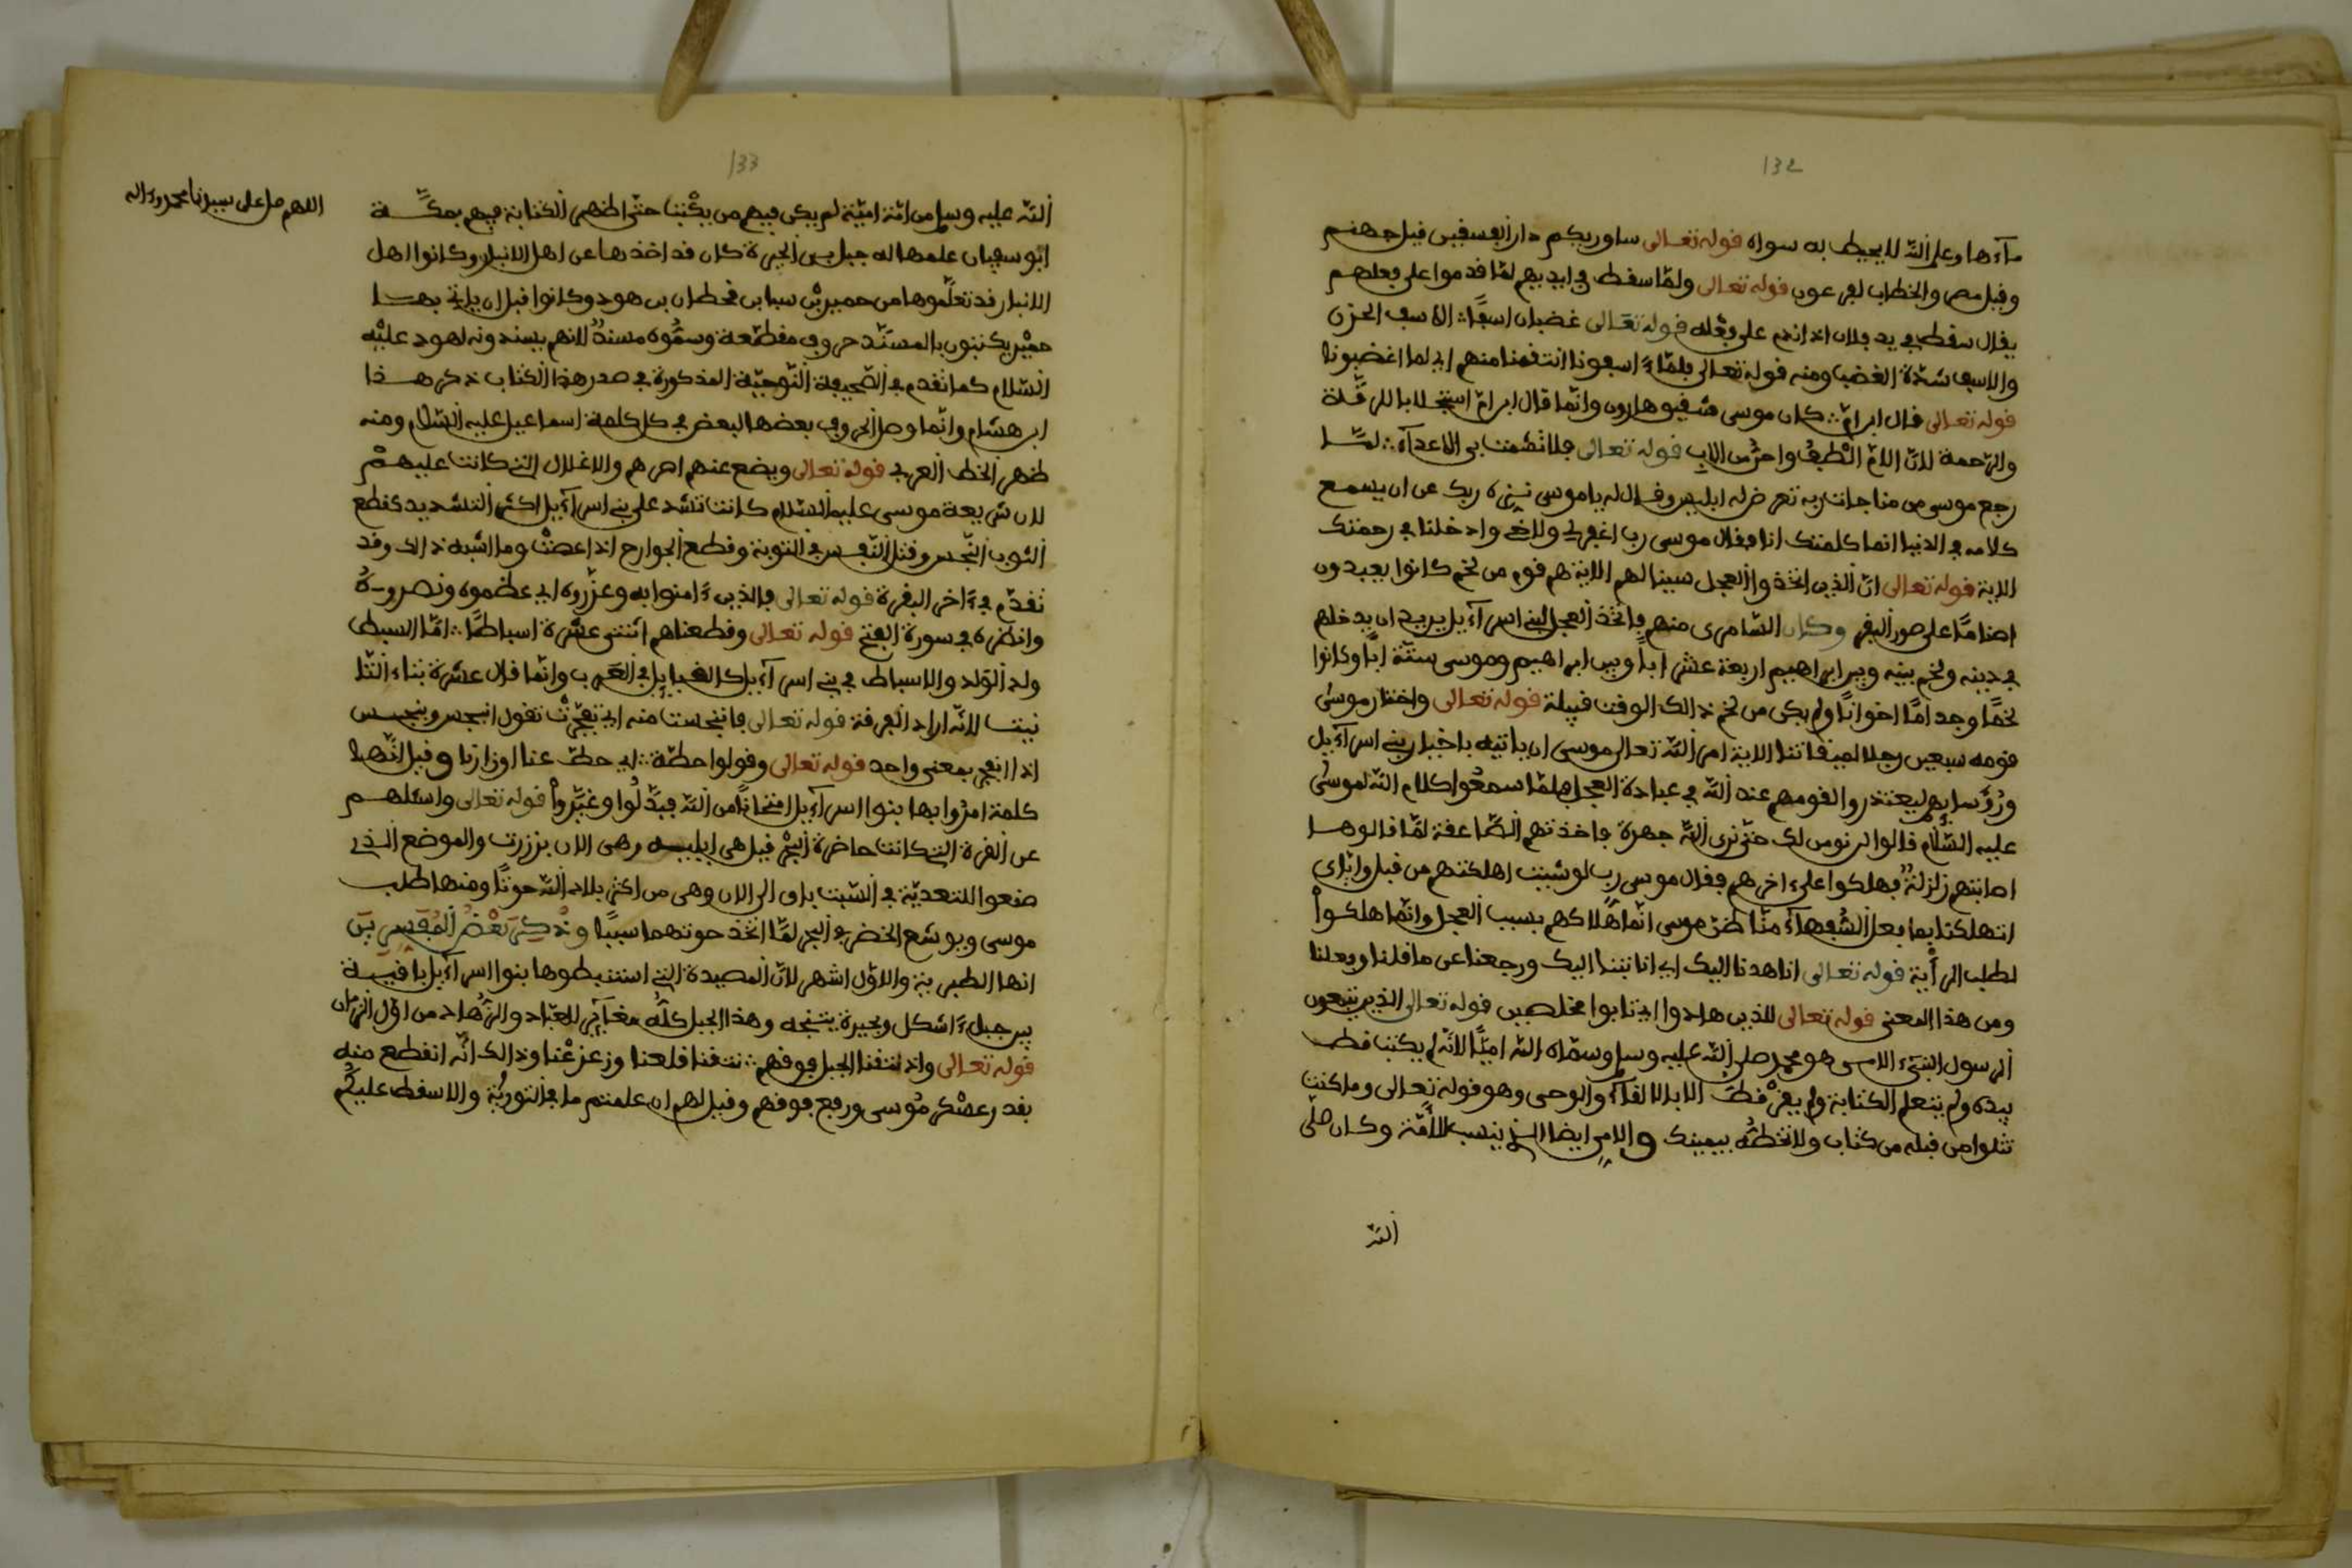 132
مآءها وعلم الله لا يحيط به سواه قوله تعالى ساوريكم دار الفسفين قيل جهنم
وقيل مصر والخطاب لفرعون قوله تعالى ولما سقط في ايديهم لما قدموا على فعلهم
يقال سقط في يد فلان اذا ندم على فعله قوله تعالى غضبان اسفا الاسف الحزن
والاسف شدة الغضب ومنه قوله تعالى فلما ءاسفونا انتقمنا منهم اي لما اغضبونا
قوله تعالى قال ابن ام كان موسى شقيق هارون وانما قال ابن ام استجلابا للرقة
والرحمة لان الام الطف واحن من الاب قوله تعالى فلا تشمت بي الاعدآء لما
رجع موسى من مناجات ربه تعرض له ابليس وقال له يا موسى ربك عن ان يسمع
كلامه في الدنيا انما كلمتك انا فقال موسى رب اغفر لي ولاخي وادخلنا في رحمتك
الاية قوله تعالى ان الذين اتخذوا العجل سينالهم الاية هم قوم من لخم كانوا يعبدون
اصناما على صور البقر وكان السامري منهم فاتخذ العجل لبني اسرآءيل يريد ان يدخلهم
في دينه ولخم بينه وبين ابراهيم اربعة عشر ابا وبين ابراهيم وموسى ستة ابا وكانوا
لخما وجداما اخوانا ولم يكن من لخم ذالك الوقت قبيلة قوله تعالى واختار موسى
قومه سبعين رجلا لميقاتنا الاية امر الله تعالى موسى ان ياتيه باخيار بني اسرآءيل
ورؤسايهم ليعتذروا لقومهم عند الله في عبادة العجل فلما سمعوا كلام الله لموسى
عليه السلام قالوا لن نومن لك حتى نرى الله جهرة فاخذتهم الصاعقة لما قالوها
اصابتهم زلزلة فهلكوا على ءاخرهم فقال موسى رب لو شيت اهلكتهم من قبل وايي
اتهلكنا بما فعل السفهآء منا ظن موسى انما هلاكهم بسبب العجل وانما هلكوا
لطلب الرأية قوله تعالى انا هدنا اليك اي انا تبنا اليك ورجعنا عن ما قلنا وفعلنا
ومن هذا المعنى قوله تعالى للذين هادوا اي تابوا مخلصين قوله تعالى الذين يتبعون
الرسول النبيء الامي هو محمد صلى الله عليه وسلم وسماه الله اميا لانه لم يكتب قط
بيده ولم يتعلم الكتابة ولم يقر قط الا بالالقآء والوحى وهو قوله تعالى وما كنت
تتلوا من قبله من كتاب ولا تخطه بيمينك والامي ايضا الذي ينسب للأمة وكان صلى
الله
133
اللهم صل على سيدنا محمد وءاله
الله عليه وسلم من امة امية لم يكن فيهم من يكتب حتى اظهر الكتابة فيهم بمكة
ابو سفيان علمها له جبل من الحيرة كان قد اخذها عن اهل الانبار وكانوا اهل
الانبار قد تعلموها من حمير بن سبا بن قحطان بن هود وكانوا قبل ان ياتي بها
حمير يكتبون بالمسند حروف مقطعة وسموه مسند لانهم يسندونه لهود عليه
السلام كما تقدم في الصحيفة المذكورة في صدر هذا الكتاب ذكر هذا
ابن هشام وانما وصل الحروف بعضها لبعض في كل كلمة اسماعيل عليه السلام ومنه
ظهر الخط العربي قوله تعالى ويضع عنهم اصرهم والاغلال التي كانت عليهم
لان شريعة موسى عليه السلام كانت تشد على بني اسرآءيل اكثر التشديد كقطع
الثوب النجس وقتل النفس في التوبة وقطع الجوارح اذا عصت وما اشبه ذالك وقد
تقدم في ءاخر البقرة قوله تعالى فالذين ءامنوا به وعزروه اي عظموه ونصروه
وانظره في سورة الفتح قوله تعالى وقطعناهم اثنتي عشرة اسباطا اما السبط
ولد الولد والاسباط في بني اسرآءيل كالقبايل في العرب وانما قال عشرة بتاء التا
نيت لانه اراد الفرقة قوله تعالى فانبجست منه اي تفجرت تقول انبجس وبنجس
اذا انفجر بمعنى واحد قوله تعالى وقولوا حطة اي حط عنا اوزارنا وقيل انها
كلمة امروا بها بنوا اسرآءيل امتحانا من الله فبدلوا وغيروا قوله تعالى واسئلهم
عن القرية التي كانت حاضرة البحر قيل هي ايليه وهي الان بزرت والموضع الذي
صنعوا للتعدية في السبت باق الى الان وهي من اكثر بلاد الله حوتا ومنها طلب
موسى ويوشع الخضر في البحر لما اتخذ حوتهما سببا وذكر بعض المفسرين
انها الطبرية والاول اشهر لان المصيدة التي استنبطوها بنوا اسرآءيل باقية
بين جبل ءاشكل وبحيرة وهذا الجبل كله للعباد والزهاد من اول الزمان
قوله تعالى واذ نتقنا الجبل فوقهم نتقنا قلعنا وزعزعنا وذالك انه انقطع منه
بقدر عسكر موسى ورفع فوقهم وقيل لهم ان علمتم ما في التورية والا سقط عليكم